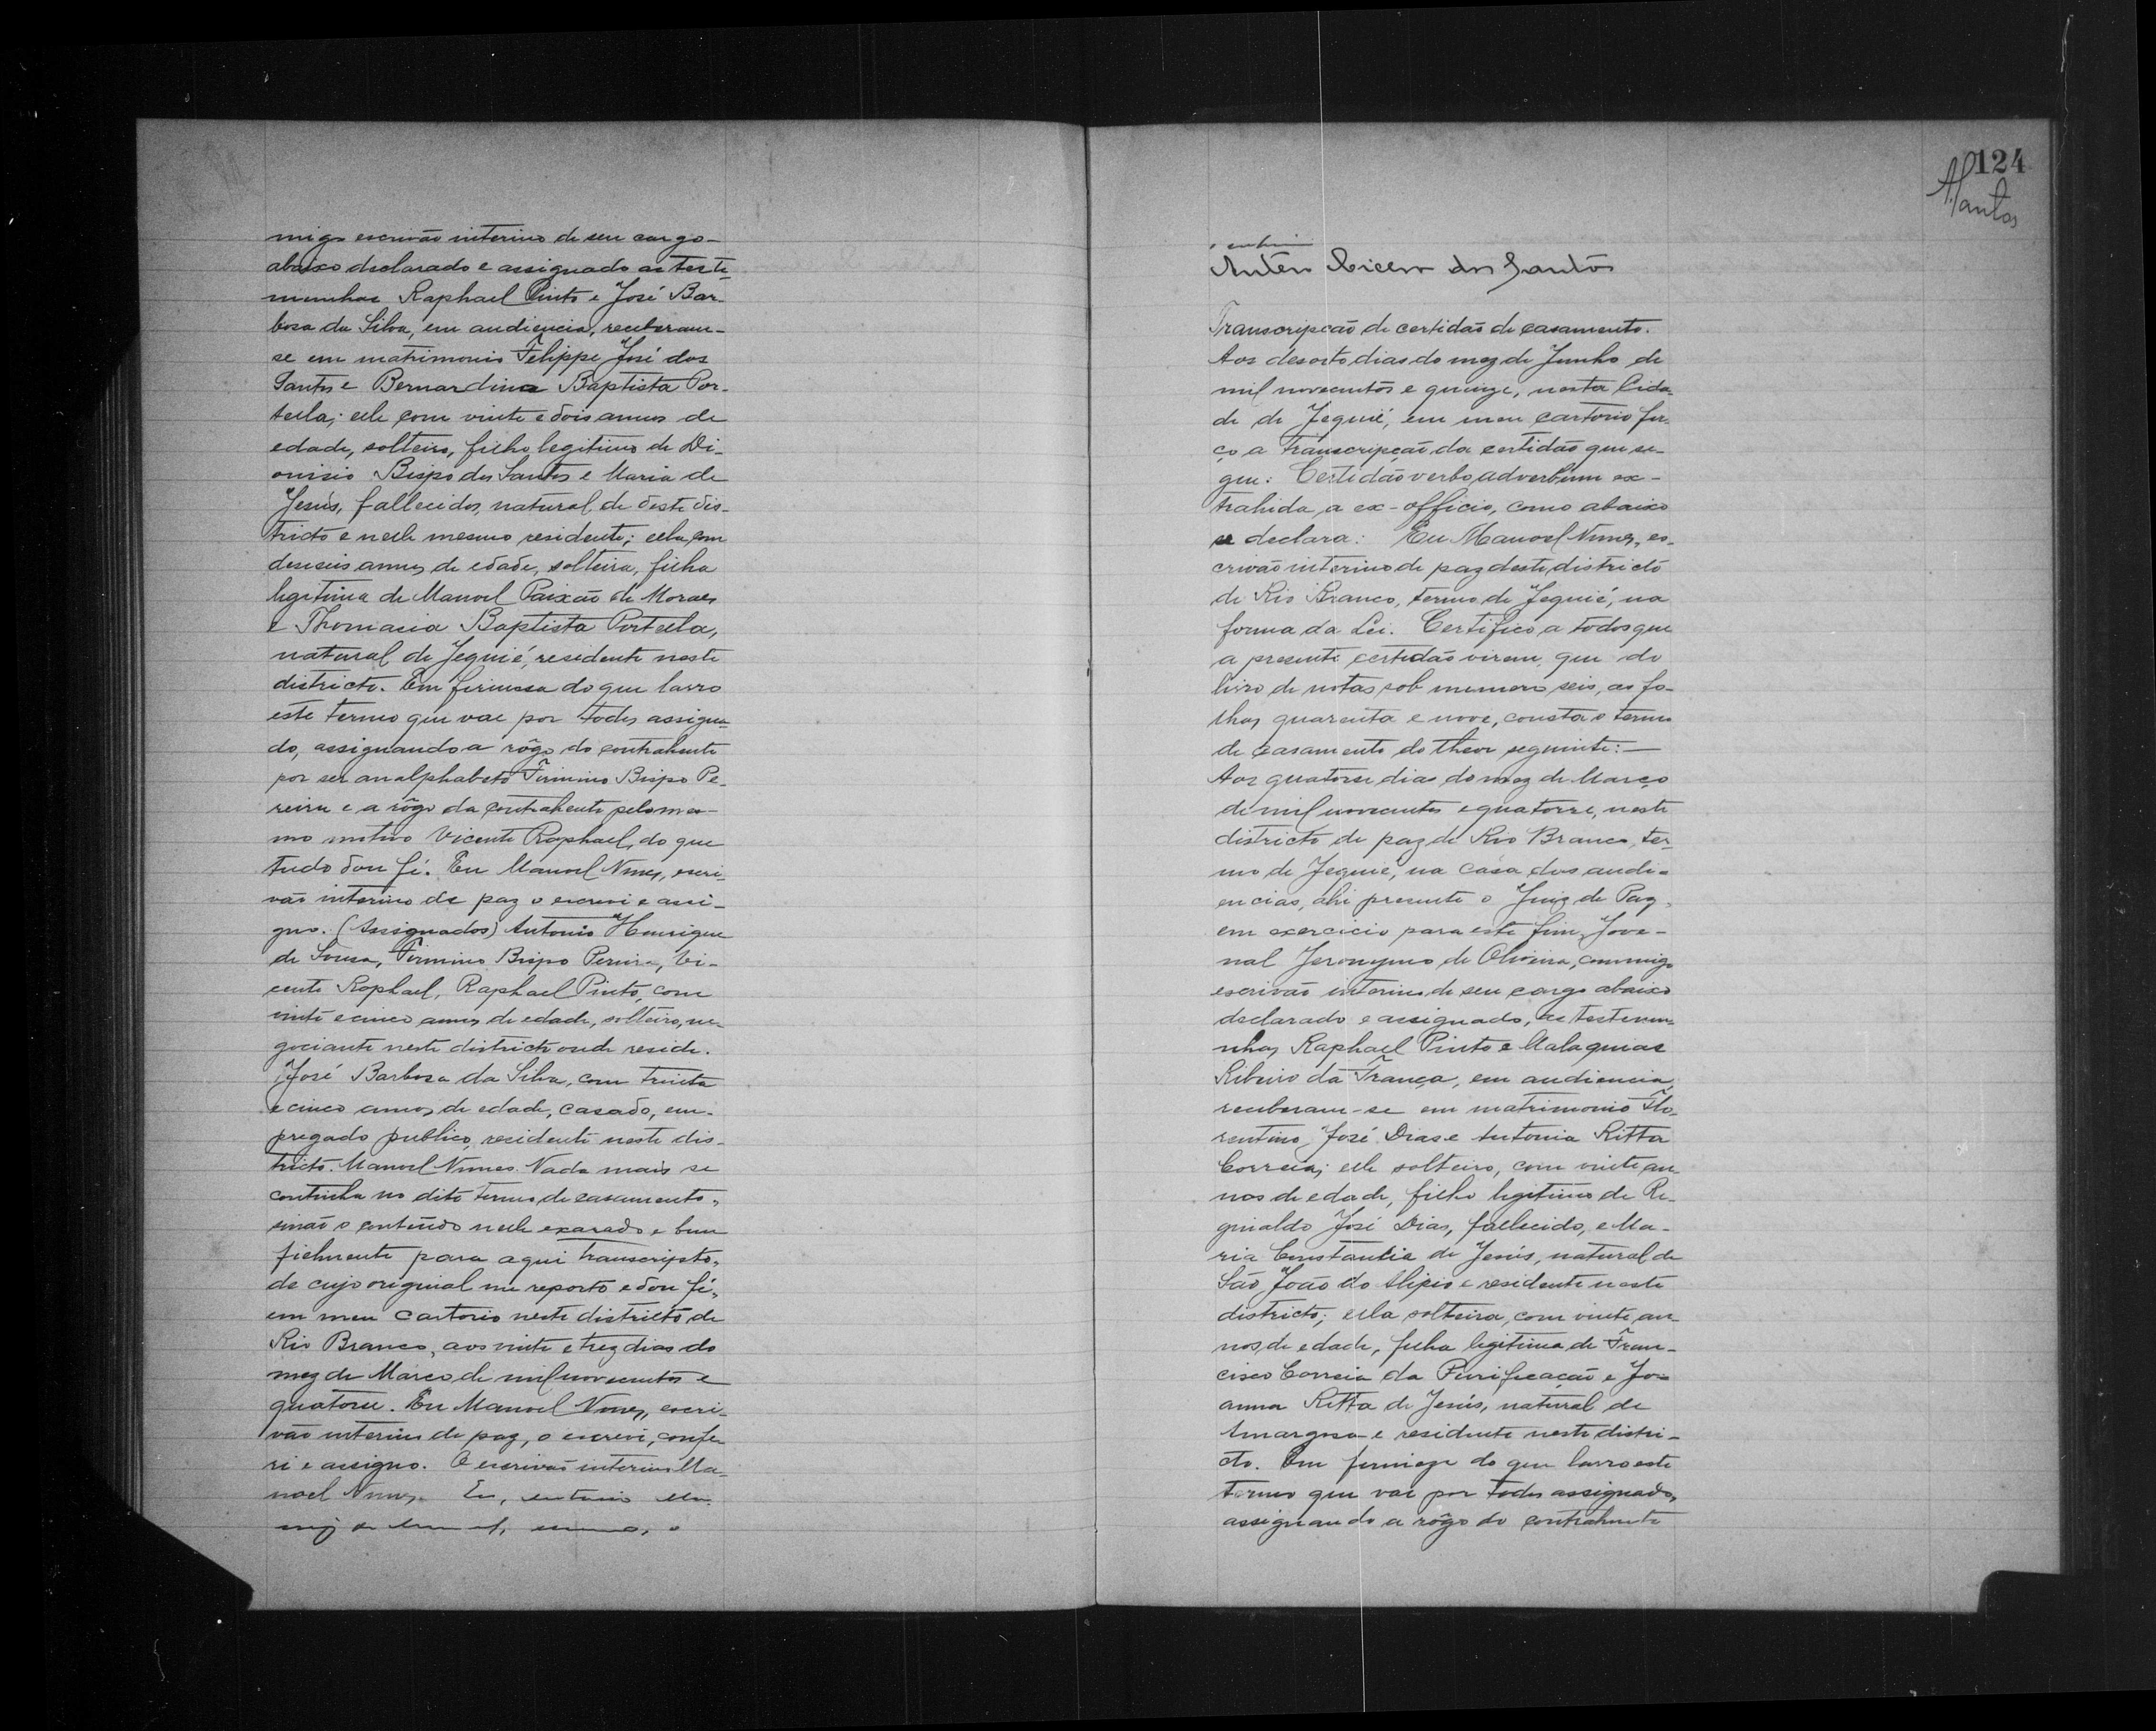 migo escrivão interino de seu cargo
abaixo declarado e assignado as teste
munhas Raphael Pinto e José Bar-
bosa da Silva, em audiencia, receberam-
se em matrimonio Felippe José dos
Santos e Bernardina Baptista Por-
tella; elle com vinte e dois annos de
edade, solteiro, filho legitimo de Di-
onisio Bispo dos Santos e Maria de
Jesús, fallecidos, natural de deste dis-
tricto e nelle mesmo residente; ella com
deseseis annos de edade, solteira, filha
legitima de Manoel Paixão de Moraes
e Thomasia Baptista Portella,
natural de Jequié, residente neste
districto. Em firmesa do que lavro
este termo que vae por todos assigna-
do, assignando a rôgo do contrahente
por ser analphabeto Firmino Bispo Pe-
reira e a rôgo da contrahente pelo mes-
mo motivo Vicente Raphael, do que
tudo dou fé. Eu Manoel Nunes, escri-
vão interino de paz o escrevi e assi-
gno. (Assignados) Antonio Henrique
de Sousa, Firmino Bispo Pereira, Vi-
cente Raphael, Raphael Pinto, com
vinte e cinco annos de edade, solteiro, ne-
gociante neste districto onde reside.
José Barbosa da Silva, com trinta
e cinco annos de edade, casado, em-
pregado publico, residente neste dis-
tricto. Manoel Nunes. Nada mais se
continha no dito termo de casamento,
sinão o contéudo nelle exarado e bem
fielmente para aqui transcripto,
de cujo original me reporto e dou fé,
em meu cartorio neste districto de
Rio Branco, aos vinte e trez dias do
mez de Março de mil novecentos e
quatorse. Eu Manoel Nunes, escri-
vão interino de paz, o escrevi, confe
ri e assigno. O escrivão interino Ma-
noel Nunes. Eu,
124
ASantos
Antéro Cicero dos Santos
Transcripção de certidão de casamento.
Aos desoito dias do mez de Junho de
mil novecentos e quinze, nesta Cida-
de de Jequié, em meu cartorio fa-
ço a transcripção da certidão que se-
gue: Certidão verbo adverbum ex-
trahida a ex-officio, como abaixo
se declara: Eu Manoel Nunes, es-
crivão interino de paz deste districto
de Rio Branco, termo de Jequié, na
forma da Lei. Certifico a todos que
a presente certidão virem, que do
livro de notas sob numero seis, as fo-
lhas quarenta e nove, consta o termo
de casamento do theor seguinte:—
Aos quatorse dias do mez de Março
de mil novecentos e quatorze, neste
districto de paz de Rio Branco, ter-
mo de Jequié, na casa das audi-
encias, ahi presente o Juiz de Paz,
em exercicio para este fim, Jove-
nal Jeronymo de Oliveira, commigo
escrivão interino de seu cargo abaixo
declarado e assignado, as testemu-
nhas Raphael Pinto e Malaquias
Ribeiro da França, em audiencia,
receberam-se em matrimonio Flo-
rentino José Dias e Antonia Ritta
Correia; elle solteiro, com vinte an-
nos de edade, filho legitimo de Re-
ginaldo José Dias, fallecido, e Ma-
ria Constancia de Jesús, natural de
São João do Alipio e residente neste
districto; ella solteira, com vinte an-
nos de edade, filha legitima de Fran-
cisco Correia da Purificação e Jo-
anna Ritta de Jesús, natural de
Amargosa e residente neste distri-
cto. Em firmeza do que lavro este
termo que vai por todos assignado,
assignando a rôgo do contrahente